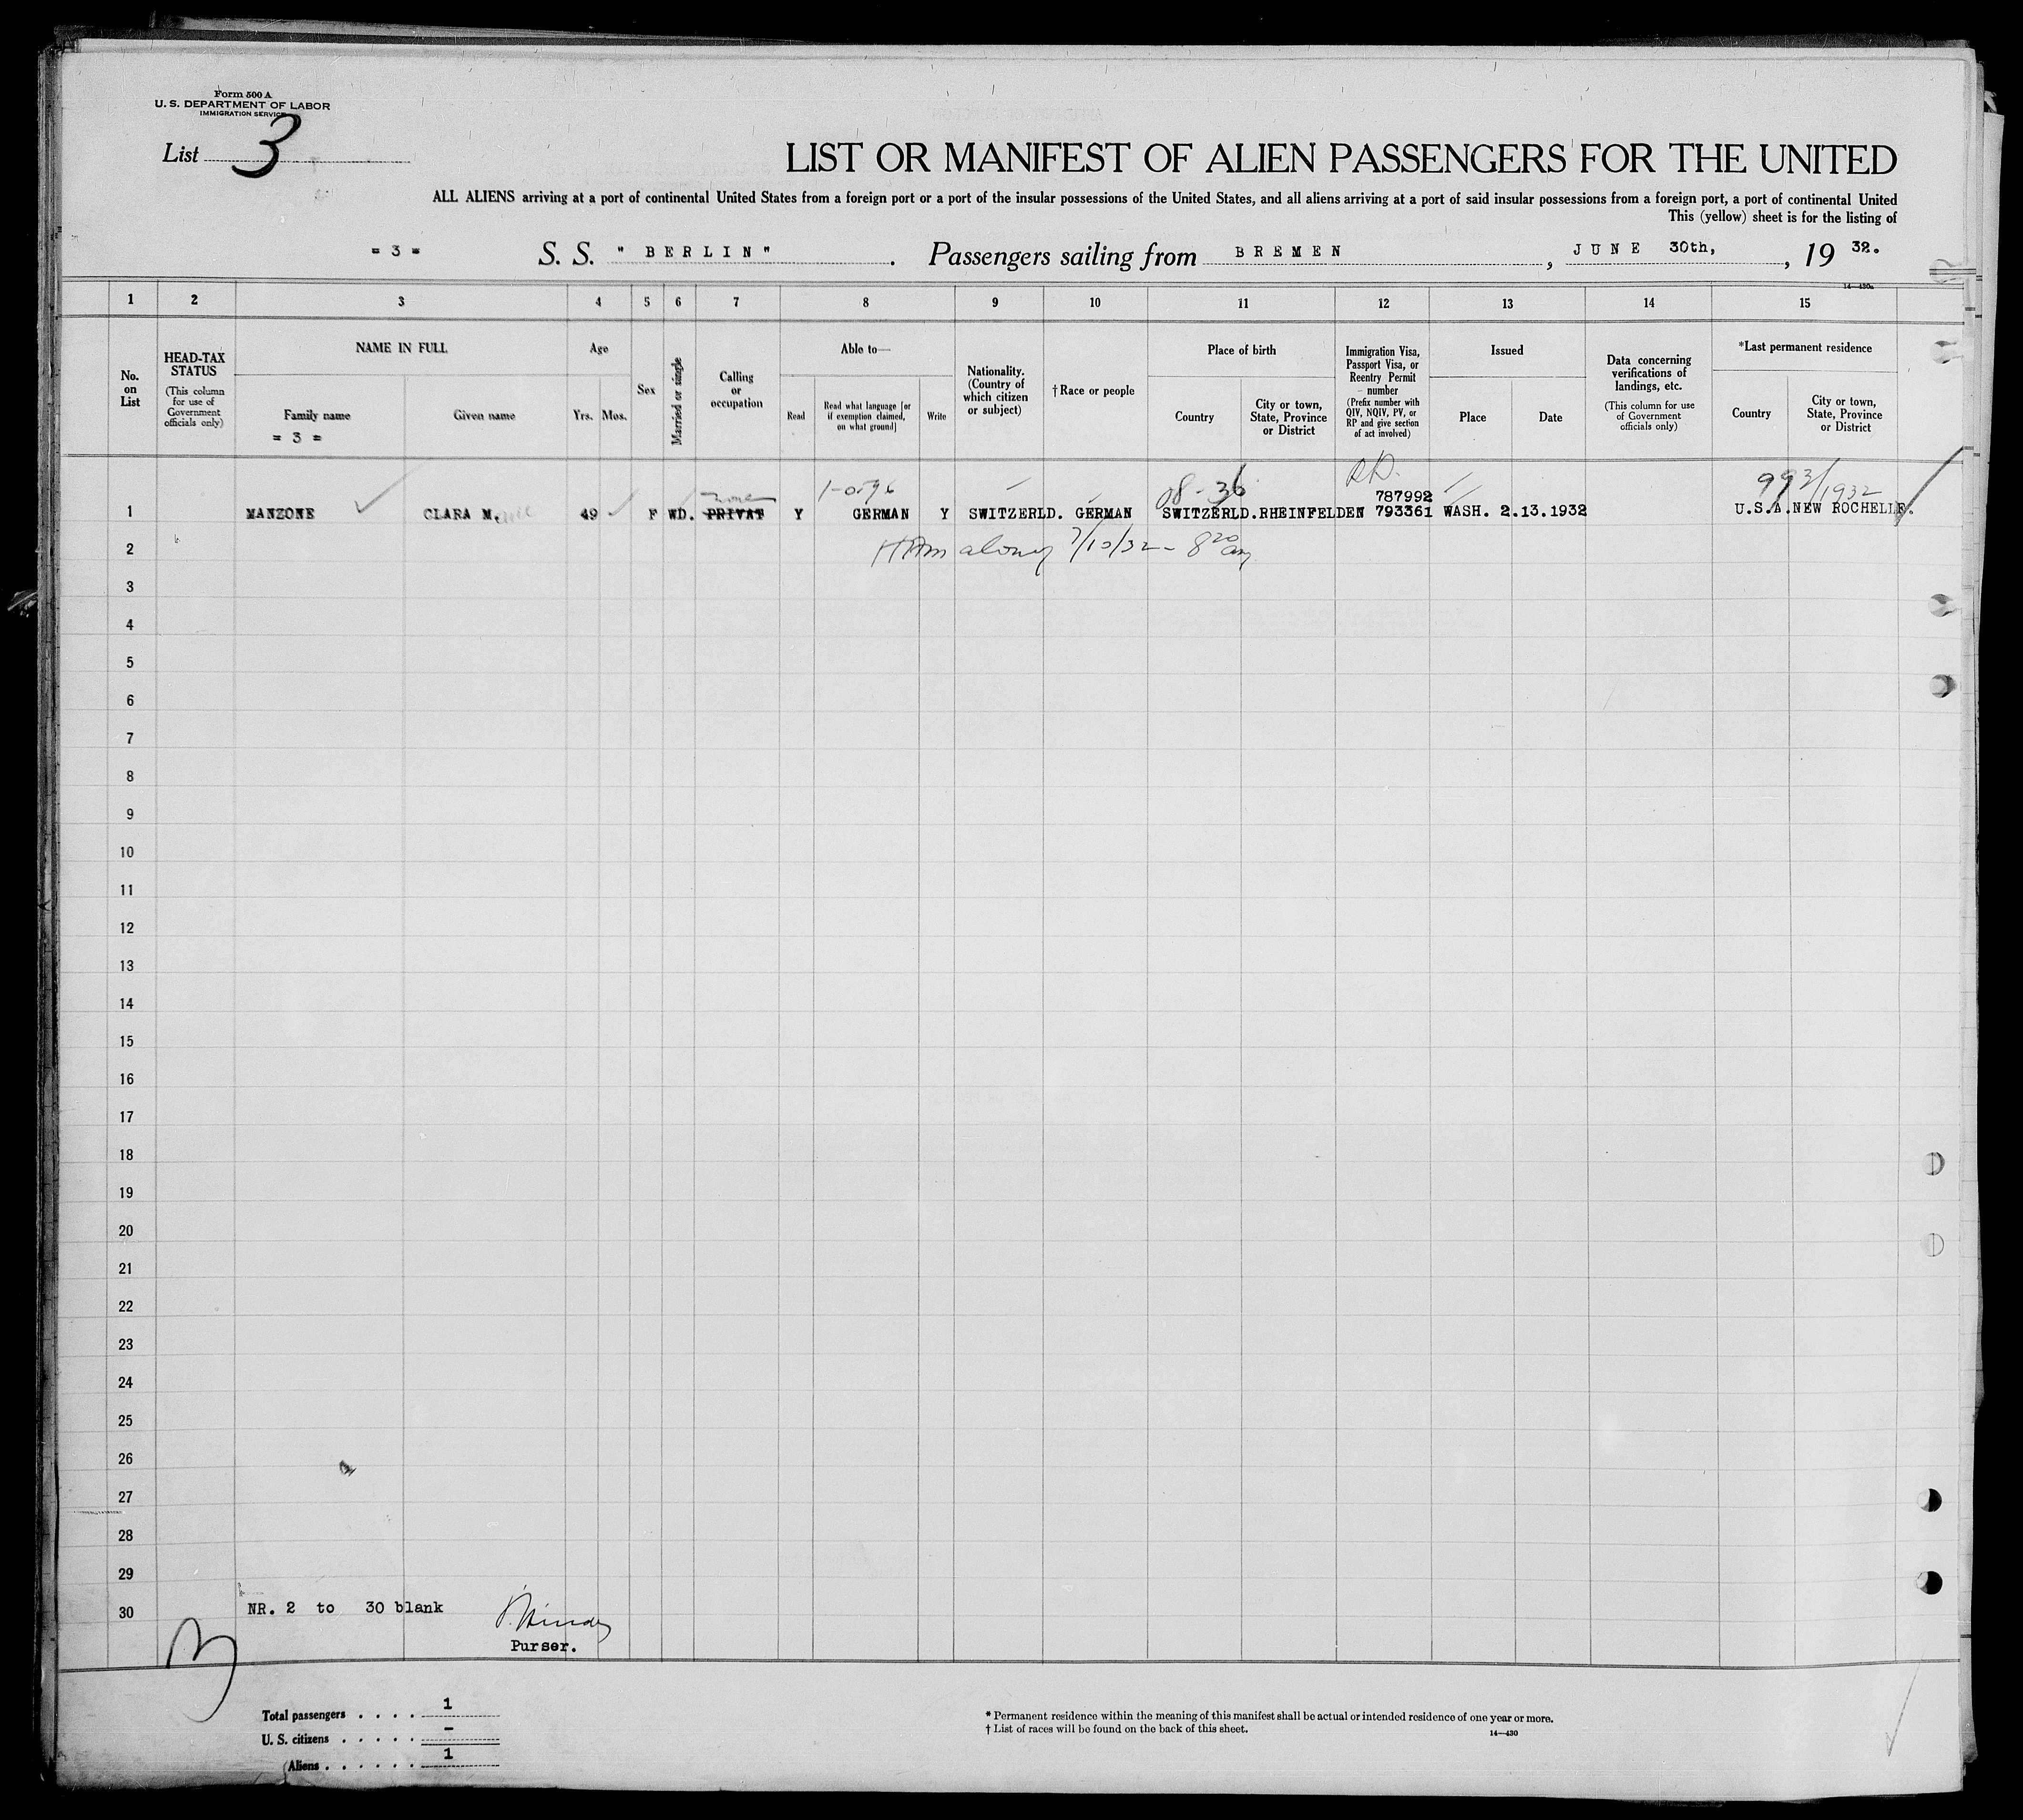 Form 500 A
U. S. DEPARTMENT OF LABOR
IMMIGRATION SERVICE
List 3
LIST OR MANIFEST OF ALIEN PASSENGERS FOR THE UNITED
ALL ALIENS arriving at a port of continental United States from a foreign port or a port of the insular possessions of the United States, and all aliens arriving at a port of said insular possessions from a foreign port, a port of continental United
This (yellow) sheet is for the listing of
= 3 = S. S. " BERLIN " . Passengers sailing from BREMEN , JUNE 30th, , 19 32.
14—430a
1 2 3 4 5 6 7 8 9 10 11 12 13 14 15
No. on List
HEAD-TAX STATUS
(This column for use of Government officials only)
NAME IN FULL
Family name
= 3 =
Given name
Age
Yrs. Mos.
Sex
Married or single
Calling or occupation
Able to—
Read
Read what language [or if exemption claimed, on what ground]
Write
Nationality. (Country of which citizen or subject)
† Race or people
Place of birth
Country
City or town, State, Province or District
Immigration Visa, Passport Visa, or Reentry Permit number
(Prefix number with QIV, NQIV, PV, or RP and give section of act involved)
Issued
Place
Date
Data concerning verifications of landings, etc.
(This column for use of Government officials only)
*Last permanent residence
Country
City or town, State, Province or District
none 08-36 787992 1932
1 MANZONE CLARA M. 49 F WD. PRIVAT Y GERMAN Y SWITZERLD. GERMAN SWITZERLD. RHEINFELDEN 793361 WASH. 2.13.1932 U.S.A. NEW ROCHELLE.
2 along 7/10/32 - 8 20 am
3
4
5
6
7
8
9
10
11
12
13
14
15
16
17
18
19
20
21
22
23
24
25
26
27
28
29
30 NR. 2 to 30 blank
Purser.
Total passengers . . . . 1
U. S. citizens . . . . . —
Aliens . . . . . . 1
* Permanent residence within the meaning of this manifest shall be actual or intended residence of one year or more.
† List of races will be found on the back of this sheet.
14—430